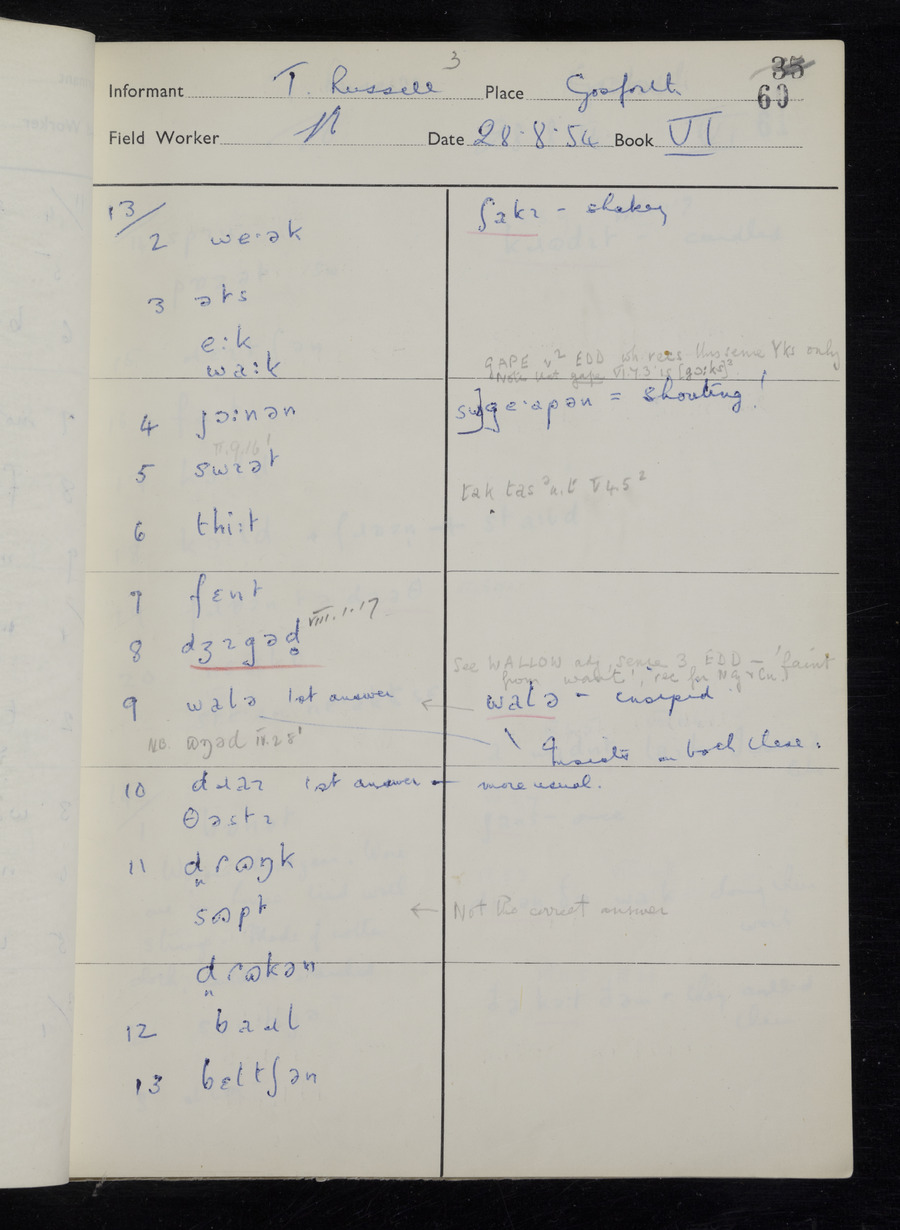 3
Informant T. Russell Place Gosforth. 35
60
Field Worker Date 28.8.54 Book VI
13/ ʃakɪ - shakey
2 we·ək
3 əts
e:k
wa:k
GAPE v² EDD whereas this sense Yks only
Note that gape VI.4.3 is [gɔ:ks]²
4 jɔ:nən sw] ge·apən = shouting!
VI.9.16¹
5 swɛət
tak tas ᵊn.t V.4.5²
6 thi:t
7 fɛnt
8 dʒɪgəd̥ VIII.1.17
See WALLOW adj, sense 3, EDD – 'faint
from want', rec for N. & Cu.
9 walə 1st answer ← walə - insipid
NB. ɷŋəd IV.28¹
insists on both these:
10 dɹaɪ 1st answer – more usual.
θəstɪ
11 drɷŋk
sɷpt ← Not the correct answer
drɷkən
12 baɹl
13 bɛltʃən